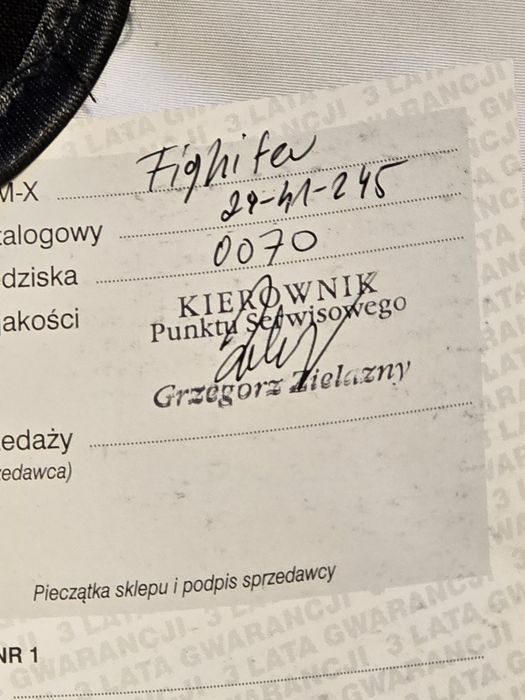 3 LATA GWARANCJI 3 LATA GWARANCJI
M-X Fighiter
talogowy 29-41-245
dziska 0070
jakości KIEROWNIK
Punktu Serwisowego
Grzegorz Zielazny
edaży
edawca)
Pieczątka sklepu i podpis sprzedawcy
3 LATA GWARANCJI 3 LATA GWARANCJI
NR 1